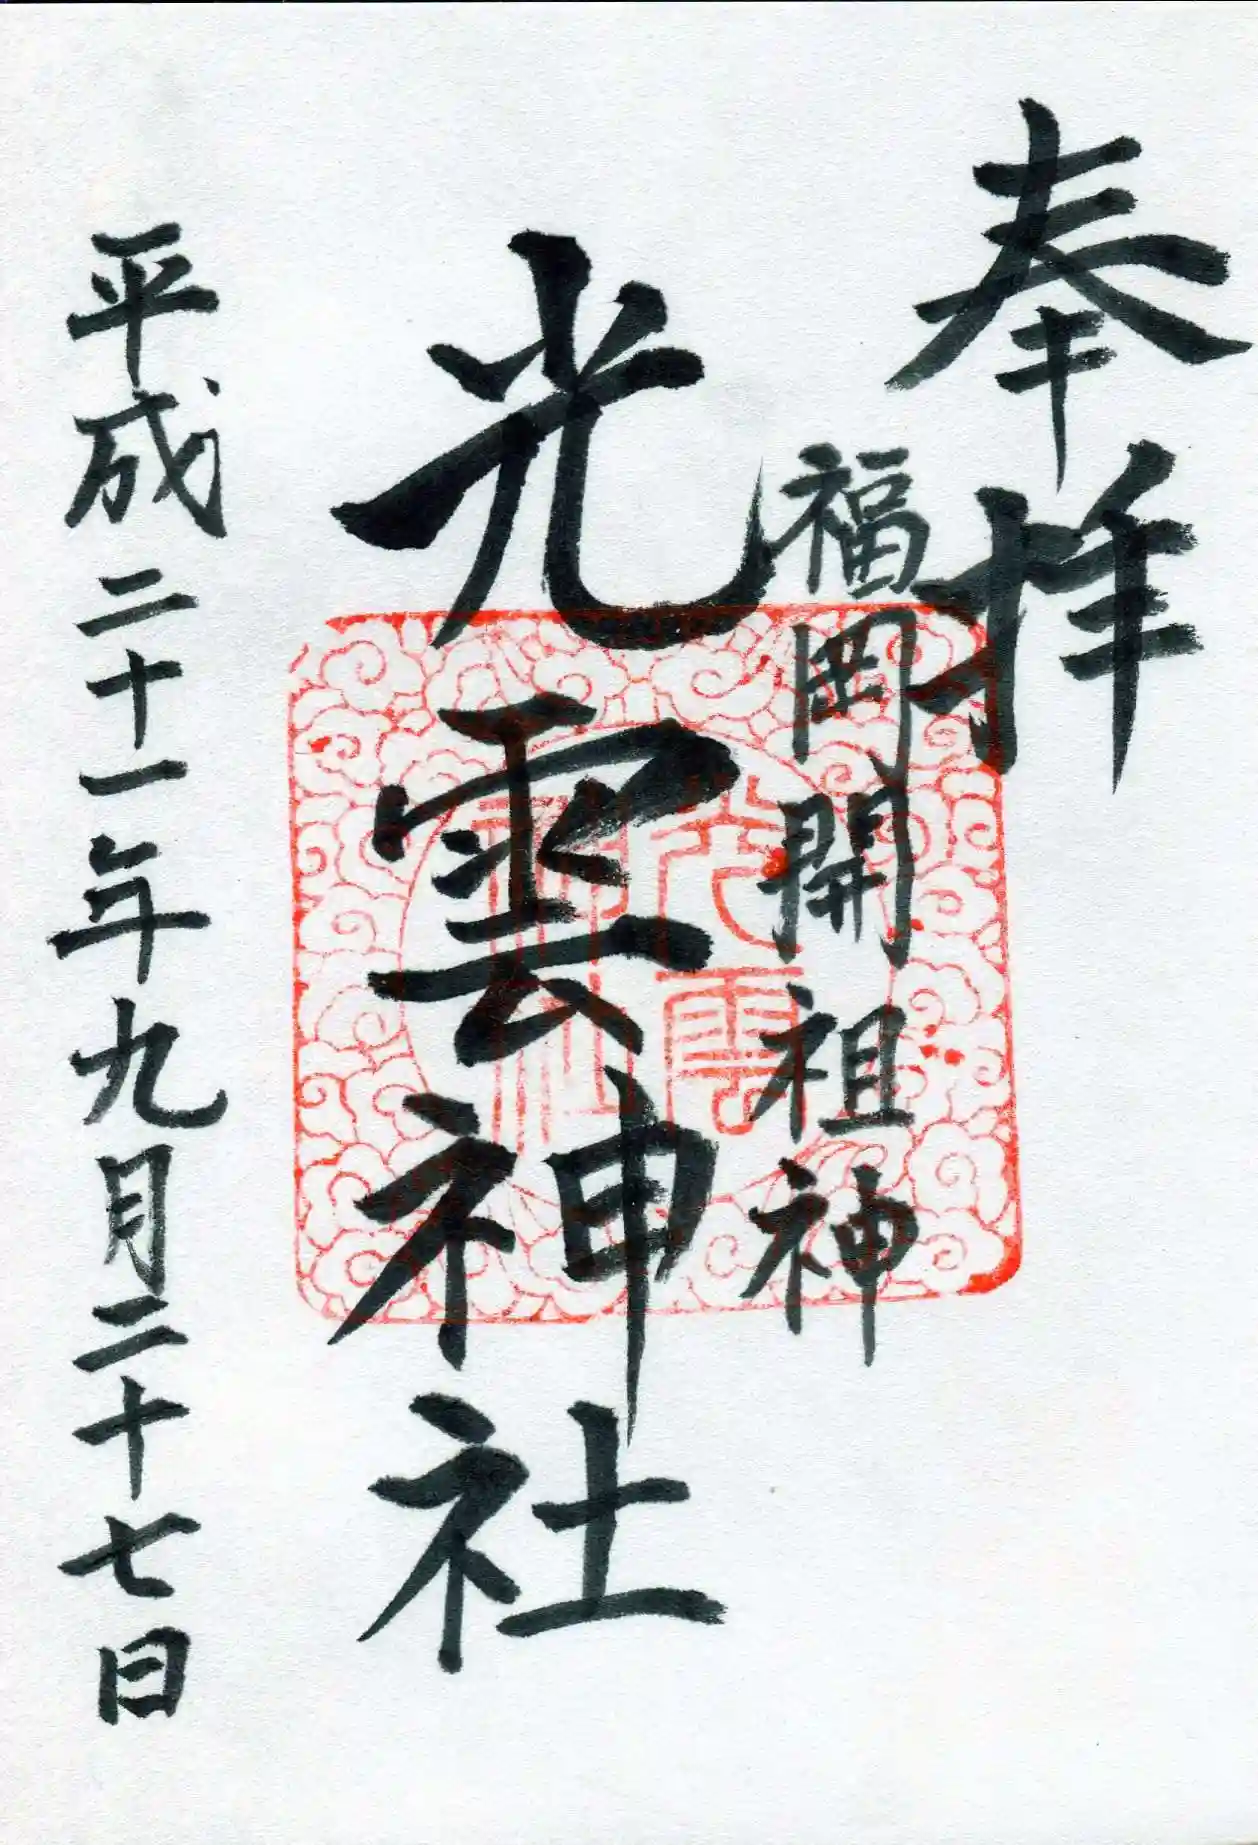 奉拝
福岡開祖神
光雲神社
光雲
神社
平成二十一年九月二十七日